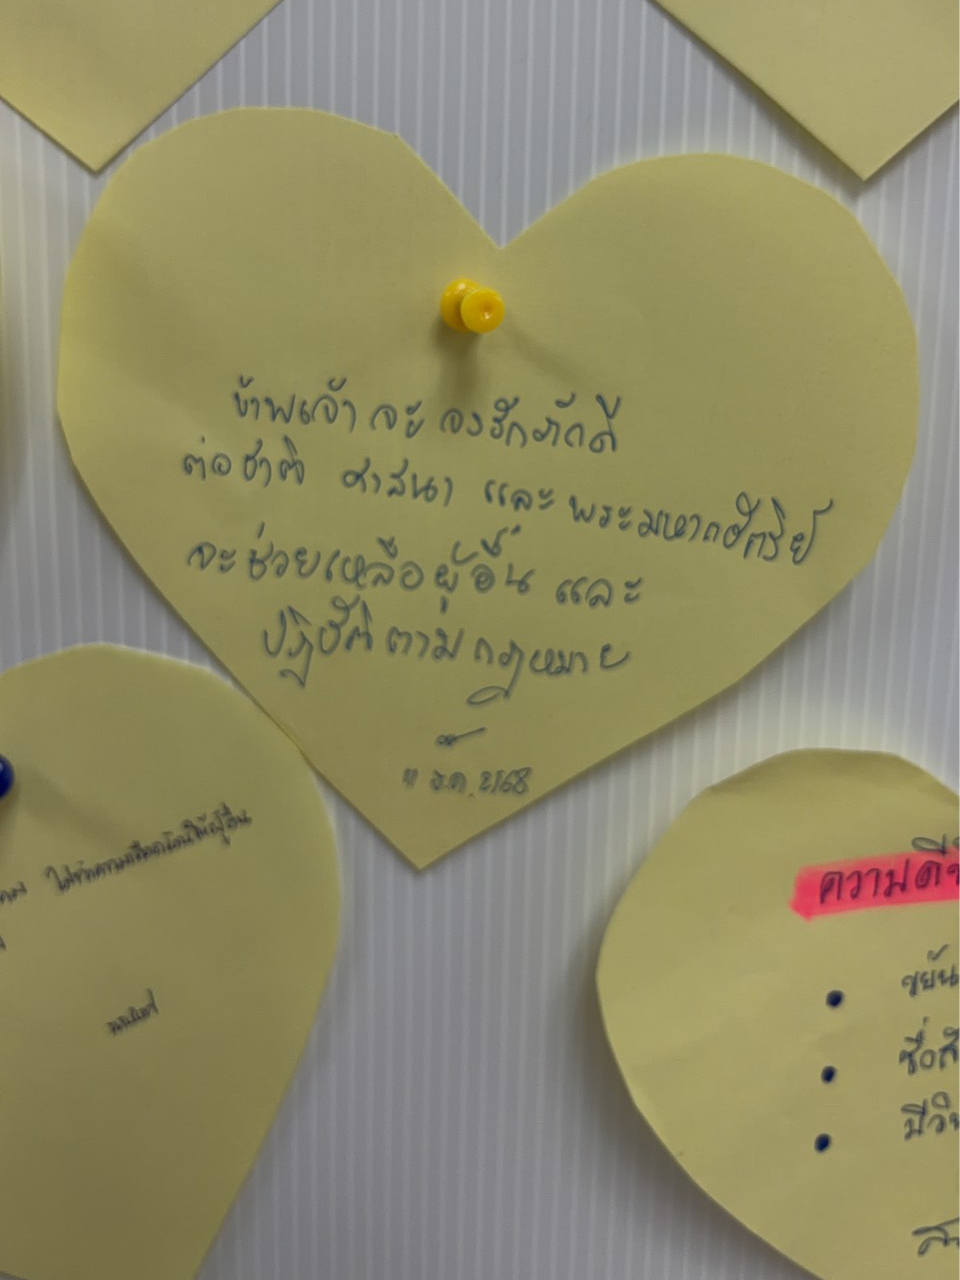 ข้าพเจ้า จะ จงรักภักดี
ต่อชาติ ศาสนา และ พระมหากษัตริย์
จะช่วยเหลือผู้อื่น และ
ปฏิบัติ ตาม กฎหมาย
11 ธ.ค. 2568
ไม่ทำความเดือดร้อนให้ผู้อื่น
ความดี
ขยัน
ซื่อสั
มีวิ